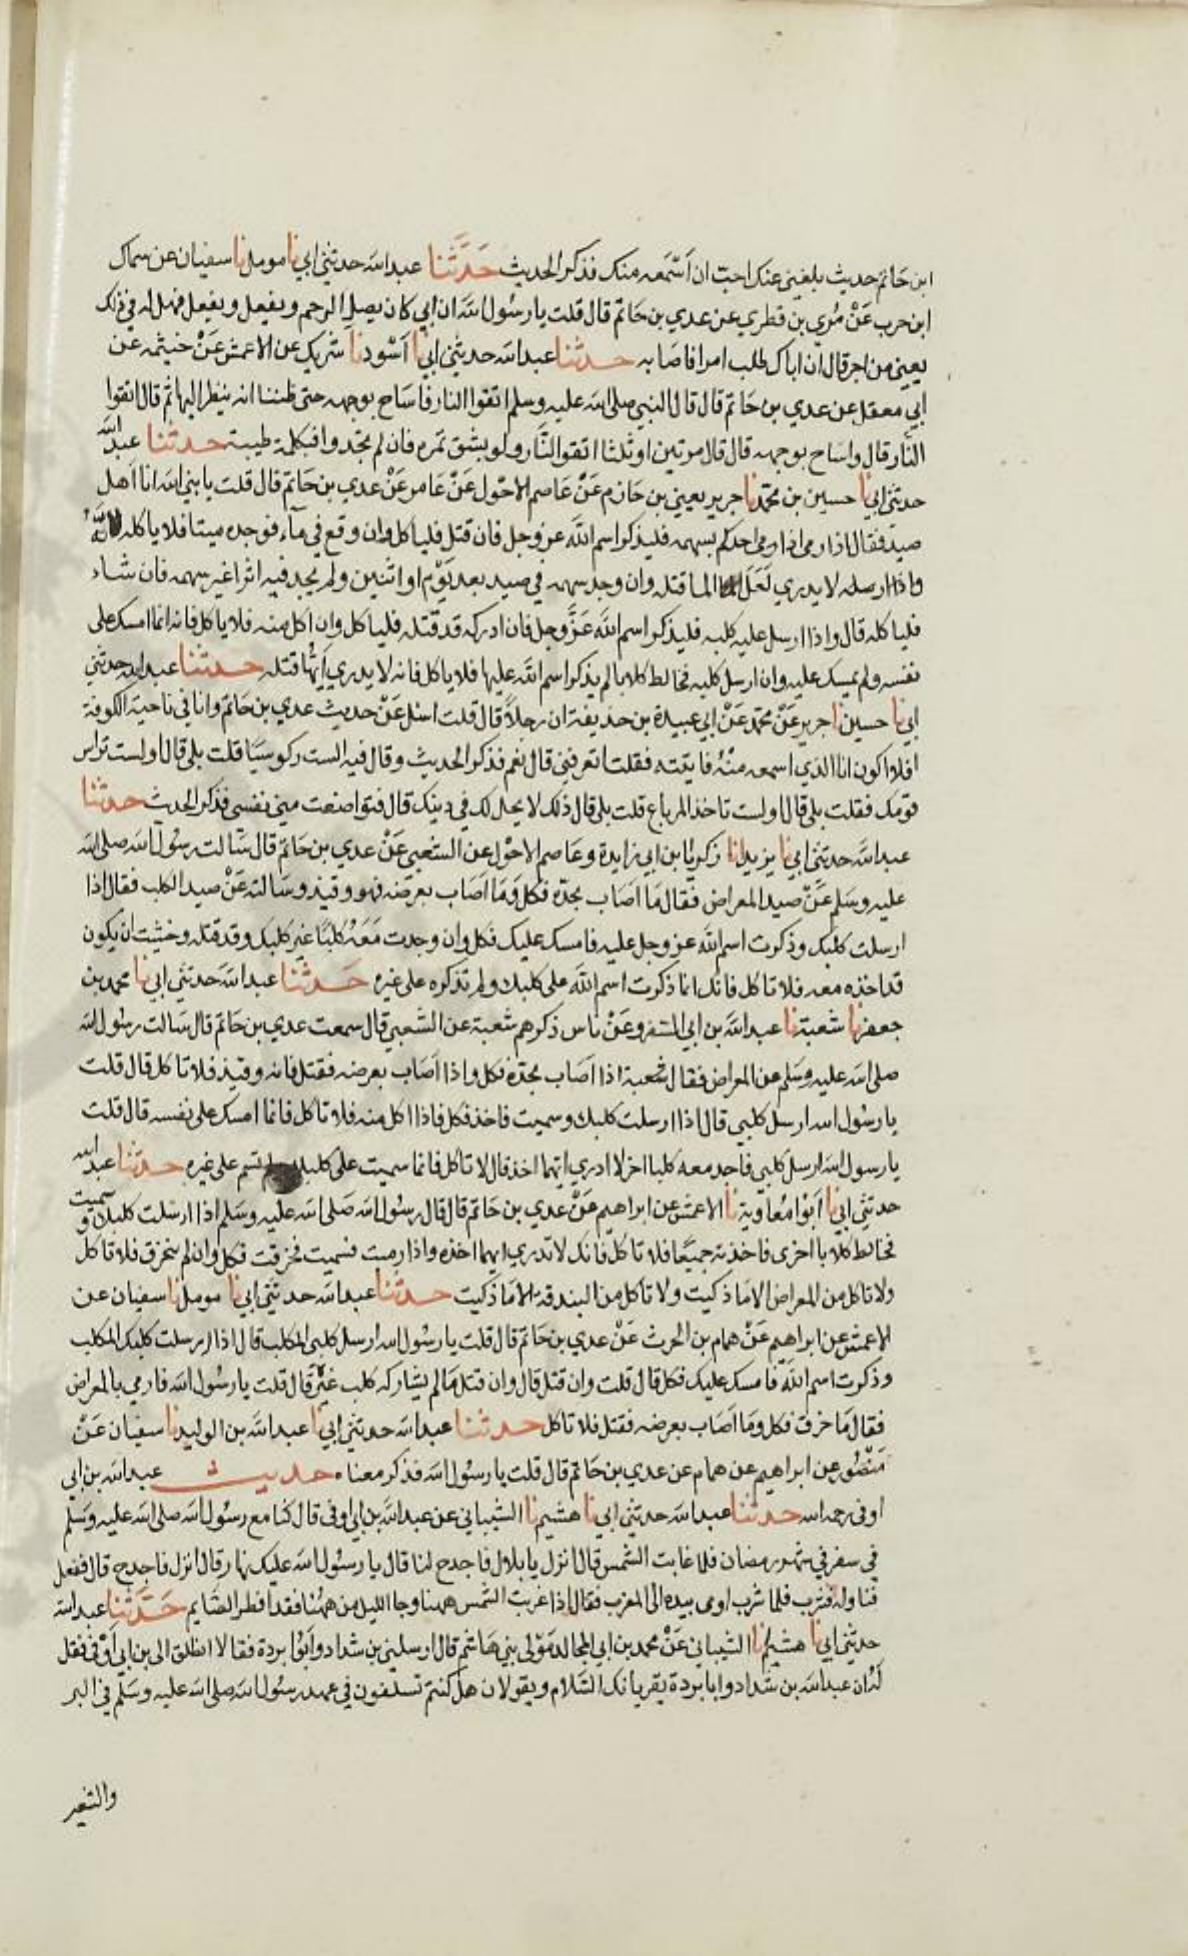 ابن حاتم حديث بلغني عنك احبّ ان أسمعه منك فذكر الحديث حَدَّثنا عبد الله حدثني ابي نا مومل نا سفيان عن سماك
ابن حرب عَنْ مُرّي بن قطري عن عدي بن حَاتم قال قلت يا رسُول الله ان ابي كان يصل الرحم ويفعل ويفعل فهل له في ذلك
يعني من اجر قال ان اباك طلب امرا فاصَابه حدثنا عبد الله حدثني ابي نا أسْود نا شريك عن الاعمش عَنْ خيثمه عن
ابي معقل عن عدي بن حَاتم قال قال النبي صلى الله عليه وسلم اتقوا النار فاساح بوجهه حتى ظننا انه ينظر اليها ثم قال اتقوا
النار قال واساح بوجهه قال قال مرتين او ثلثا اتقوا النَّار ولو بشق تمره فان لم تجدوا فبكلمة طيبة حدثنا عبد الله
حدثني ابي نا حسين بن محمّد نا جرير يعيني بن حازم عَنْ عَاصم الاحْول عَنْ عَامر عَنْ عدي بن حَاتم قال قلت يا نبي الله انا اهل
صيد فقال اذا رمى احدكم بسهمه فليذكر اسم الله عز وجل فان قتل فلياكل وان وقع في مآء فوجده ميتا فلا ياكله
لا يدري لَعَلَّ الما قتله وان وجد سهمه في صيد بعد يَوْم او اثنين ولم يجد فيه اثرا غير سهمه فان شاء
فلياكله قال واذا ارسل عليه كلبه فليذكر اسم الله عَزَّ وجل فان ادركه قد قتله فلياكل وان اكل منه فلا ياكل فانه انما امسك على
نفسه ولم يمسك عليه وان ارسل كلبه فخالط كلابا لم يذكر اسم الله عليها فلا ياكل فانه لا يدري أيّها قتله حدثنا عبد الله حدثني
ابي نا حسين نا جرير عَنْ محمّد عَنْ ابي عبيدة بن حذيفة ان رجلاً قال قلت اسئل عَنْ حديث عدي بن حَاتم وانا في ناحية الكوفة
افلا اكون انا الذي اسمعه منْهُ فاتيته فقلت اتعرفني قال نعم فذكر الحديث وقال فيه الست ركوسيّا قلت بلى قال اولست تراس
قومك فقلت بلى قال اولست تاخذ المرباع قلت بلى قال ذلك لا يحل لك في دينك قال فتواضعت مني نفسي فذكر الحديث حدثنا
عبد الله حدثني ابي نا يزيد انا زكريا بن ابي زايدة وعاصم الاحْول عن الشعبي عَنْ عدي بن حَاتم قال سَالت رسُول الله صلى الله
عليه وسَلم عَنْ صيد المعراض فقال مَا اصَاب بحدّه فكل وَمَا اَصَاب بعرضه فهو وقيذ وسَالته عَنْ صيد الكلب فقال اذا
ارسلت كلبك وذكرت اسم الله عز وجل عليه فامسك عليك فكل وان وجدت مَعَهُ كلبًا غير كلبك وقد قتله وخشيت ان يكون
قد اخذه معه فلا تاكل فانك انما ذكرت اسم الله على كلبك ولم تذكره على غيره حَدثنا عبد الله حَدثني ابي نا محمد بن
جعفر نا شعبة نا عبد الله بن ابي السفر وعَنْ ناس ذكرهم شعبة عن الشعبي قال سمعت عدي بن حَاتم قال سَالت رسُول الله
صلى الله عليه وسَلم عن المعراض فقال شعبة اذا اصَاب بحدّه فكل واذا اَصَاب بعرضه فقتل فانه وقيذ فلا تاكل قال قلت
يا رسُول الله ارسل كلبي قال اذا ارسلت كلبك وسميت فاخذ فكل فاذا اكل منه فلا تاكل فانما امسك على نفسه قال قلت
يا رسول الله ارسل كلبي فاجد معه كلبا اخر لا ادري ايّهما اخذ قال لا تاكل فانما سميت على كلبك ولم تسم على غيره حدثنا عبد الله
حدثني ابي نا اَبُوا مُعاوية نا الاعمش عن ابراهيم عَنْ عدي بن حَاتم قال قال رسُول الله صَلى الله عليه وسَلم اذا ارسَلت كلبك وسميت
فخالط كلابا اخرى فاخذته جميعًا فلا تاكل فانك لا تدري ايهما اخذه واذا رميت فسميت فخزقت فكل وان لم يتخزق فلا تاكل
ولا تاكل من المعراض الا مَا ذكيت ولا تاكل من البندقة الا مَا ذكيت حدثنا عبد الله حدثني ابي نا مومل نا سفيان عن
الاعمش عن ابراهيم عَنْ همام بن الحرث عَنْ عدي بن حَاتم قال قلت يا رسُول الله ارسل كلبي المكلب قال اذا ارسلت كلبك المكلب
وذكرت اسم الله فامسك عليك فكل قال قلت وان قتل قال وان قتل مَالم يشاركه كلب غيْره قال قلت يا رسُول الله فارمي بالمعراض
فقال مَا خرق فكل ومَا اَصَاب بعرضه فقتل فلا تاكل حدثنا عبد الله حدثني ابي نا عبد الله بن الوليد نا سفيان عَنْ
مَنْصُور عن ابراهيم عن همام عن عدي بن حَاتم قال قلت يا رسُول الله فذكر معناه حديث عبد الله بن ابي
اوفى رحمه الله حدثنا عبد الله حدثني ابي نا هشيم نا الشيباني عن عبد الله بن ابي اوفى قال كنا مع رسُول الله صلى الله عليه وسَلم
في سفر في شهر رمضان فلما غابت الشمس قال انزل يا بلال فاجدح لنا قال يا رسول الله عليك نهار قال انزل فاجدح قال ففعل
فناوله فشرب فلما شرب اومى بيده الى المغرب فقال اذا غربت الشمس ههنا وجا الليل من ههُنا فقد افطر الصَّايم حَدَّثنا عبد الله
حدثني ابي نا هشيم نا الشيباني عَنْ محمد بن ابي المجالد مَوْلى بني هَاشم قال ارسلني بن شداد وابوُا بردة فقالا انطلق الى بن ابي اَوْفى فقل
لَهُ ان عبد الله بن شدّاد وابا بردة يقريانك السَّلام ويقولان هل كنتم تسلفون في عهد رسُول الله صلى الله عليه وسَلّم في البر
والشعير